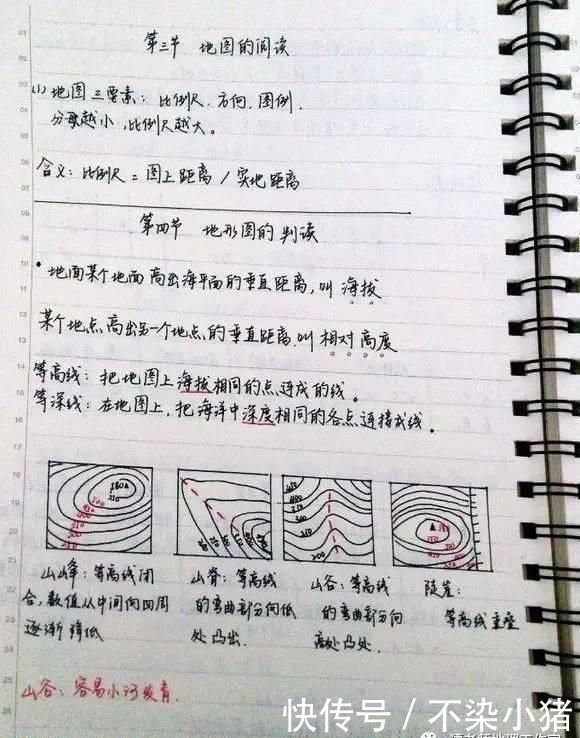 第三节 地图的阅读
(1) 地图三要素：比例尺．方向．图例．
分母越小，比例尺越大。
含义：比例尺＝图上距离／实地距离
第四节 地形图的判读
• 地面某个地面高出海平面的垂直距离，叫海拔
某个地点高出另一个地点的垂直距离．叫相对高度
等高线：把地图上海拔相同的点连成的线。
等深线：在地图上，把海洋中深度相同的各点连接成线。
山峰：等高线闭
合，数值从中间向四周
逐渐降低
山脊：等高线
的弯曲部分向低
处凸出．
山谷：等高线
的弯曲部分向
高处凸处．
陡崖：
等高线重叠
山谷：容易小河发育．
快传号／不染小猪